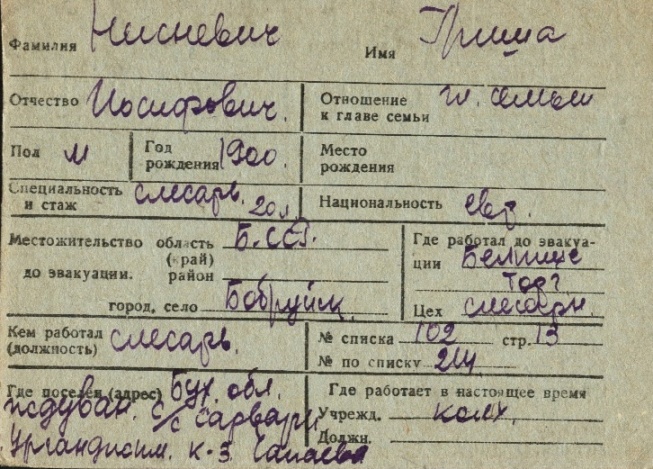 Фамилия Нисневич Имя Гриша
Отчество Иосифович. Отношение к главе семьи гл. семьи
Пол м Год рождения 1900. Место рождения
Специальность и стаж слесарь 20 л. Национальность евр.
Местожительство до эвакуации. область (край) Б.ССР.
район
город, село Бобруйск
Где работал до эвакуации торг
Цех слесарн.
Кем работал (должность) слесарь. № списка 102 стр. 13
№ по списку 214
Где поселен (адрес) Бух. обл.
Гиждуван. с/с Сарвари
к-з. Чапаева
Где работает в настоящее время
Учрежд. колх.
Должн.